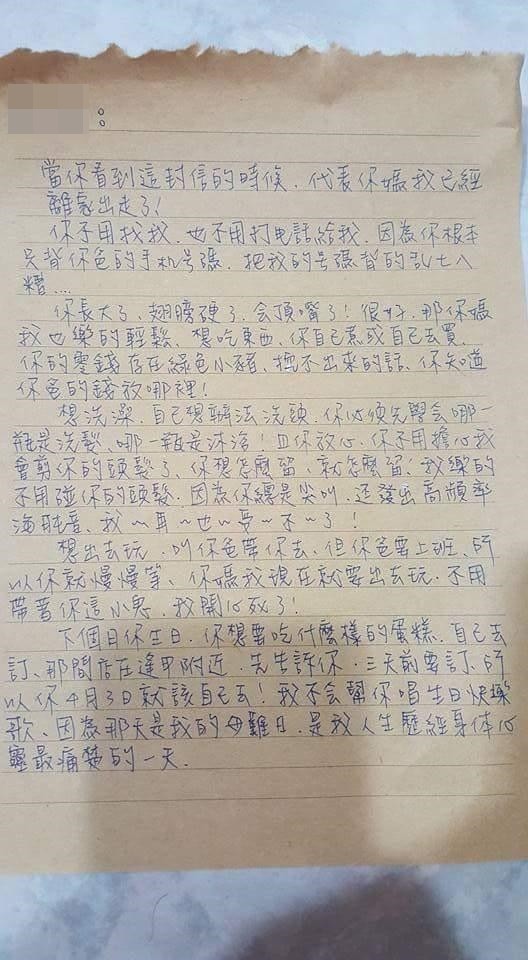 ：
當你看到這封信的時候．代表你媽我已經
離家出走了！
你不用找我．也不用打电話給我．因為你根本
只背你爸的手机号碼．把我的号碼背的乱七八
糟....
你長大了、翅膀硬了．会頂嘴了！很好．那你媽
我也樂的輕鬆、想吃東西、你自己煮或自己去買．
你的零錢存在綠色小豬．挖不出來的話．你知道
你爸的錢放哪裡！
想洗澡．自己想辦法洗頭．你必須先學会哪一
瓶是洗髮、哪一瓶是沐浴！且你放心．你不用擔心我
會剪你的頭髮了、你想怎麼留．就怎麼留！我樂的
不用碰你的頭髮．因為你總是尖叫．还發出高頻率
海豚音、我～耳～也～受～不～了！
想出去玩．叫你爸帶你去、但你爸要上班、所
以你就慢慢等、你媽我現在就要出去玩．不用
帶著你這小鬼．我開心死了！
下個日你生日．你想要吃什麼樣的蛋糕．自己去
訂、那間店在逢甲附近．先告訴你．三天前要訂、所
以你4月3日就該自己去！我不会幫你唱生日快樂
歌、因為那天是我的母難日．是我人生歷經身体心
靈最痛楚的一天．